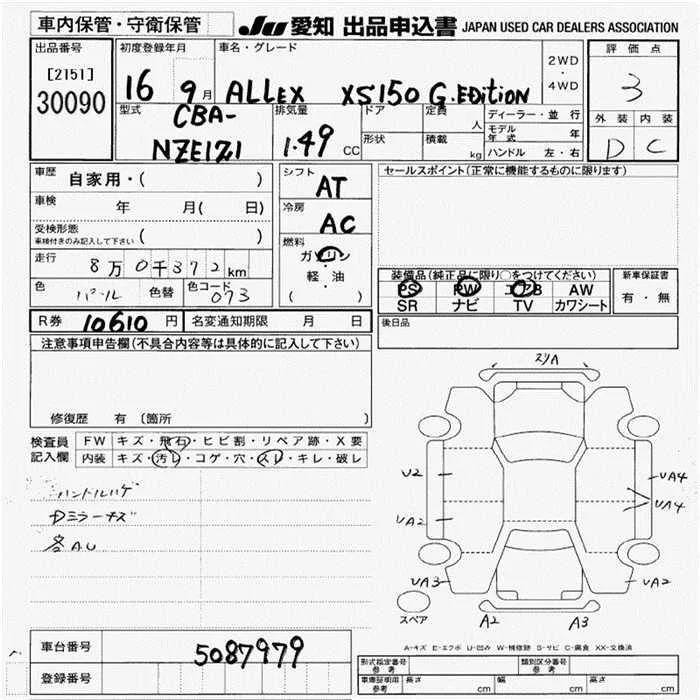 車内保管・守衛保管 JU 愛知 出品申込書 JAPAN USED CAR DEALERS ASSOCIATION
出品番号 [2151] 30090
初度登録年月 16 9月
車名・グレード ALLEX XS150 G.EDITION
2WD・4WD
評価点 3
型式 CBA-NZE121
排気量 1.49 CC
ドア 形状
定員 人
積載 kg
ディーラー・並行
モデル年式 年
ハンドル 左・右
外装 D
内装 C
車歴 自家用・( )
車検 年 月( 日)
受検形態 ( )
車検付きのみ記入して下さい
走行 8万0千372km
色 パール 色替 色コード 073
シフト AT
冷房 AC
燃料 ガソリン・軽・油 ( )
セールスポイント(正常に機能するものに限ります)
装備品(純正品に限り○をつけてください)
PS PW エアB AW
SR ナビ TV カワシート
新車保証書 有・無
R券 10610 円 名変通知期限 月 日
後日品
注意事項申告欄(不具合内容等は具体的に記入して下さい)
修復歴 有 〔箇所
検査員記入欄
FW キズ・飛石・ヒビ割・リペア跡・X要
内装 キズ・汚レ・コゲ・穴・スレ・キレ・破レ
ハンドルハゲ
Dミラーキズ
スリA
U2
UA2
UA3
UA4
UA4
UA2
A2 A3
スペア
A-キズ E-エクボ U-凹み W-補修跡 S-サビ C-腐食 XX-交換済
車台番号 5087979
登録番号
形式指定番号 参考
類別区分番号 参考
車庫証明用 参考 長さ cm 幅 cm 高さ cm